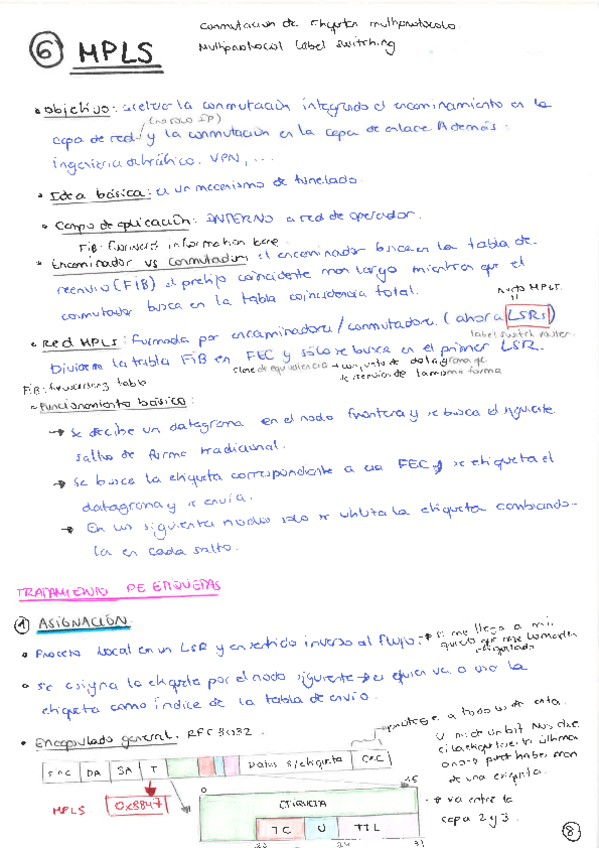 Conmutación de Etiquetas multiprotocolo
⑥ MPLS Multiprotocol Label Switching
• Objetivo: acelerar la conmutación integrando el encaminamiento en la
(no solo IP)
capa de red y la conmutación en la capa de enlace. Además:
ingeniería de tráfico, VPN, ...
• Idea básica: es un mecanismo de tunelado.
• Campo de aplicación: INTERNO a red de operador.
FiB: forward information base
• Encaminador vs conmutador: el encaminador busca en la tabla de
reenvío (FiB) el prefijo coincidente más largo mientras que el
conmutador busca en la tabla coincidencia total.
nodo MPLS.
• Red MPLS: formada por encaminadores/conmutadores. (ahora LSRs)
label switch router.
Dividen la tabla FiB en FEC y sólo se busca en el primer LSR.
clase de equivalencia → conjunto de datagramas que
se reenvían de la misma forma
FiB: forwarding table
• Funcionamiento básico:
→ Se recibe un datagrama en el nodo frontera y se busca el siguiente
salto de forma tradicional.
→ Se busca la etiqueta correspondiente a esa FEC, se etiqueta el
datagrama y se envía.
→ En los siguientes nodos solo se utiliza la etiqueta cambiando-
la en cada salto.
TRATAMIENTO DE ETIQUETAS
① ASIGNACIÓN
• Proceso local en un LSR y en sentido inverso al flujo. * si me llega a mi,
quiero que me lo manden
etiquetado
• Se asigna la etiqueta por el nodo siguiente → es quien va a usar la
etiqueta como índice de la tabla de envío.
• Encapsulado general. RFC 3032.
protege a todo
U mide un bit. Nos dice
si la etiqueta es la última
o no → puede haber más
de una etiqueta.
DA SA T Datos s/etiqueta CRC
MPLS 0x8847
0 15
ETIQUETA
TC U TTL
24 31
* va entre la
capa 2 y 3.
⑧